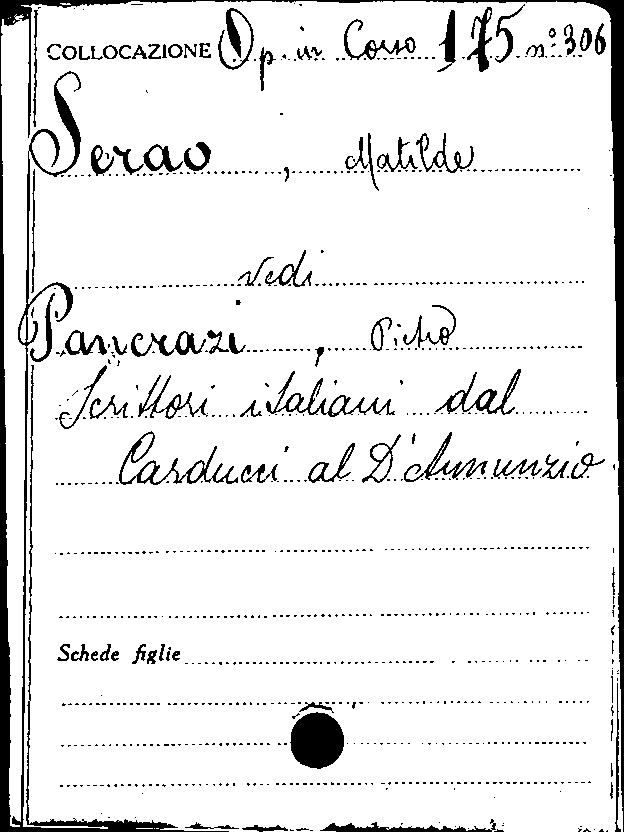 COLLOCAZIONE Op. in Corso 175 n° 306
Serao, Matilde
vedi
Pancrazi, Pietro
Scrittori italiani dal
Carducci al D'Annunzio
Schede figlie